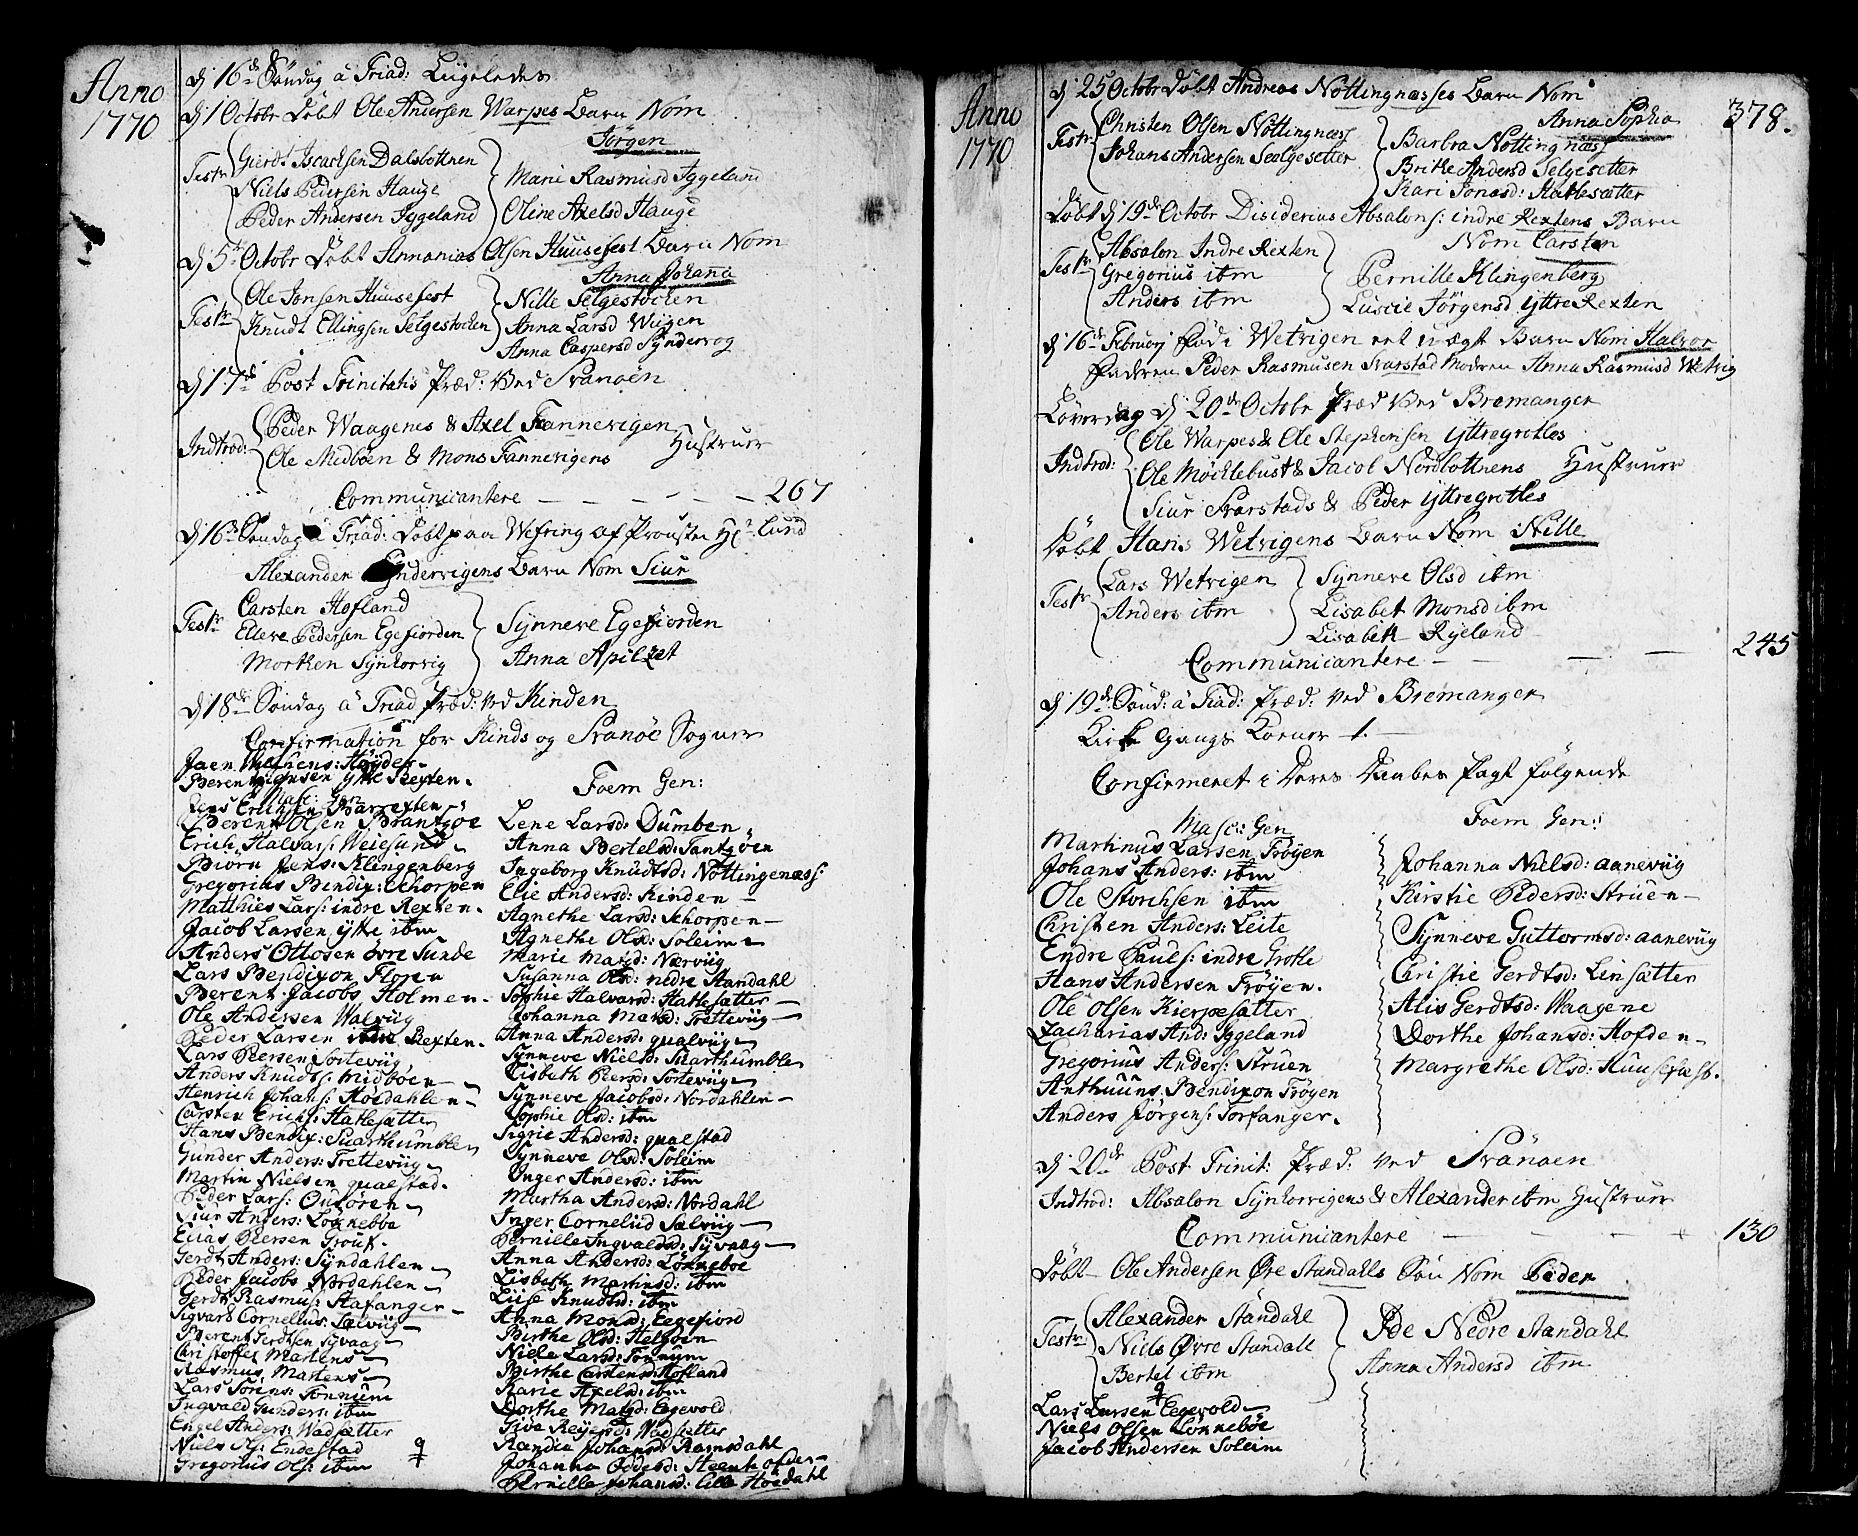 Anno
1770
dj 16de Søndag a Triad: Ligeledes
dj 1 Octobr Døbt Ole Andersen Warpes Barn Nom
Jørgen
Testr Gierdt Iscachsen Dalsbottnen
Niels Pedersen Hauge
Peder Andersen Iggeland
Marie Rasmusd Iggeland
Oline Axelsd Hauge
dj 5te Octobr Døbt Annanias Olsen Huusefest Barn Nom
Anna Johanna
Testr Ole Jonsen Huusefest
Knudt Ellingsen Selgestochen
Nille Selgestochen
Anna Larsd Wiigen
Anna Caspersd Syndervog
dj 17de Post Trinitatis Præd: Ved Svanøen
Indtrod: Peder Waagenes & Axel Fannevigen
Ole Midbøen & Mons Fannevigens
Hustruer
Communicantere — — — — — 267
dj 16de Søndag a Triad: Døbt paa Wefring af Provsten Hr Lund
Alexander Synderrigens Barn Nom Siur
Testr Carsten Hofland
Elleve Pedersen Egefiorden
Morten Synhorvig
Synneve Egefiorden
Anna Apilset
dj 18de Søndag a Triad Præd: Ved Kinden
Confirmation for Kinds og Svanøe Sogner
Jaen Mathiens: Høyden.
Berent Jensen ytre Rexten.
Masc: Gen
Jens Erichsen Barrexten
Berent Olsen Brantzøe
Erich Halvars: Weiesund
Biørn Jens: Klingenberg
Gregorius Bendix: Schorpen
Matthies Lars: indre Rexten.
Jacob Larsen ytre ibm
Anders Ottosen øvre Sunde
Lars Bendixon Florøn
Berent Jacobs Holmen.
Ole Andersen Walviig
Peder Larsen Rexten.
Lars Persen Sorteviig
Anders Knudts: Midbøen
Henrich Johans: Høedahlen
Carsten Erichs: Hatlesætter
Hans Bendix: Svarthumblen
Gunder Anders: Tretteviig
Martin Nielsen qualstad.
Peder Lars: Ousøren
Siur Anders: Lønnebøe
Elias Persen Grouf.
Gerdt Anders: Syndahlen
Peder Jacobs Nordahlen
Gerdt Rasmus: Stafanger
Sigvard Cornelius: Sælviig
Berent Gerdtsen Syvaag
Christoffer Martens
Rasmus Martens
Lars Sørens: Tonnum
Ingvald Gunders: ibm
Engel Anders: Wadsætter
Niels Endestad
Gregorius Ols: ibm
Foem Gen:
Lene Larsd: Dumben
Anna Bertelsd: Tantzøen
Ingeborg Knudtsd: Nøttingenæss:
Elie Andersd: Kinden
Agnethe Larsd: Schorpen
Agnethe Olsd: Soleim
Marie Marsd: Nærviig
Susanna Olsd: nedre Standahl
Sophie Halvarsd: Hatlesætter
Johanna Marsd: Tretteviig
Anna Andersd: qualviig
Synneve Nielsd: Svarthumble
Lisbeth Persd: Sorteviig
Synneve Jacobsd: Nordahlen
Sophie Olsd: ibm
Sigrie Andersd: qualstad
Synneve Olsd: Soleim
Inger Andersd: ibm
Martha Andersd: Nordahl
Inger Cornelind Sælviig
Pernille Ingvaldsd: Syvaag
Anna Andersd: Lønnebøe
Lisbeth Martinsd: ibm
Liise Knudtsd: ibm
Anna Monsd: Egefiord
Birthe Olsd: Helgøen
Niele Larsd: Tonnum
Birthe Carstensd: Hofland
Marie Axelsd: ibm
Dorthe Matsd: Eggevold
Give Reyersd: Wadsetter
Randie Johansd: Ramsdahl
Johanna Oddesd: Steenhofden
Pernille Johansd: Lille Høedahl
Anno
1770
378.
dj 25 Octobr Døbt Andreas Nøttingnæsses Barn Nom
Anna Sophia
Testr Christen Olsen Nøttingnæss
Johans Andersen Seolgesetter
Barbra Nøttingnæss
Brithe Andersd Selgesetter
Kari Jonasd: Hatlesætter
Døbt dj 19de Octobr Disiderius Absalons: indre Rextens Barn
Nom Carsten
Testr Absalon Indre Rexten
Gregorius ibm
Anders ibm
Pernille Klingenberg
Luscie Jørgensd yttre Rexten
dj 16de Februarj Fød i Wetvigen eet u-ægt Barn Nom Halvor
Fadren Peder Rasmusen Svarstad Modren Anna Rasmusd Wetvig
Løverdag dj 20de Octobr Præd Ved Bremanger
Indtrod: Ole Warpes & Ole Stephensen yttregrotles
Ole Mychlebust & Jacob Nordbottnens Hustruer
Siur Svarstads & Peder yttregrotles
Døbt Hans Wetvigens Barn Nom Nille
Testr Lars Wetvigen
Anders ibm
Synneve Olsd ibm
Lisabet Monsd ibm
Lisabet Ryeland
Communicantere — — — 245
dj 19de Sønd: a Triad: Præd: Ved Bremanger
Kirke Gangs Koener 1.
Confirmeret i Deres Daabes Pagt følgende
Masc: Gen
Martinus Larsen Frøyen
Johans Anders: ibm
Ole Storchsen ibm
Christen Anders: Leite
Endre Pauls: indre Grotle
Hans Andersen Frøyen.
Ole Olsen Kierpesætter
Zacharias And: Iggeland
Gregorius Anders: Struen
Anthuuns Bendixon Frøyen
Anders Jørgens: Torfanger.
Foem Gen:
Johanna Nielsd: aaneviig
Kirstie Pedersd: Struen
Synneve Guttormsd: aaneviig
Christie Gerdtsd: Linsætter
Alis Gerdtsd: Waagene
Dorthe Johansd: Hofden
Margrethe Olsd: Huusefæst.
dj 20de Post Trinit: Præd: Ved Svanøen
Indtrod: Absalon Synhorrigens & Alexander ibm Hustruer
Communicantere — — — 130
Døbt Ole Andersen Øvre Standahls Søn Nom Peder
Testr Alexander Standahl
Niels Øvre Standall
Bertel ibm
Ide Nedre Standahl
Anna Andersd ibm
Lars Larsen Eggevold
Niels Olsen Lønnebøe
Jacob Andersen Soleim